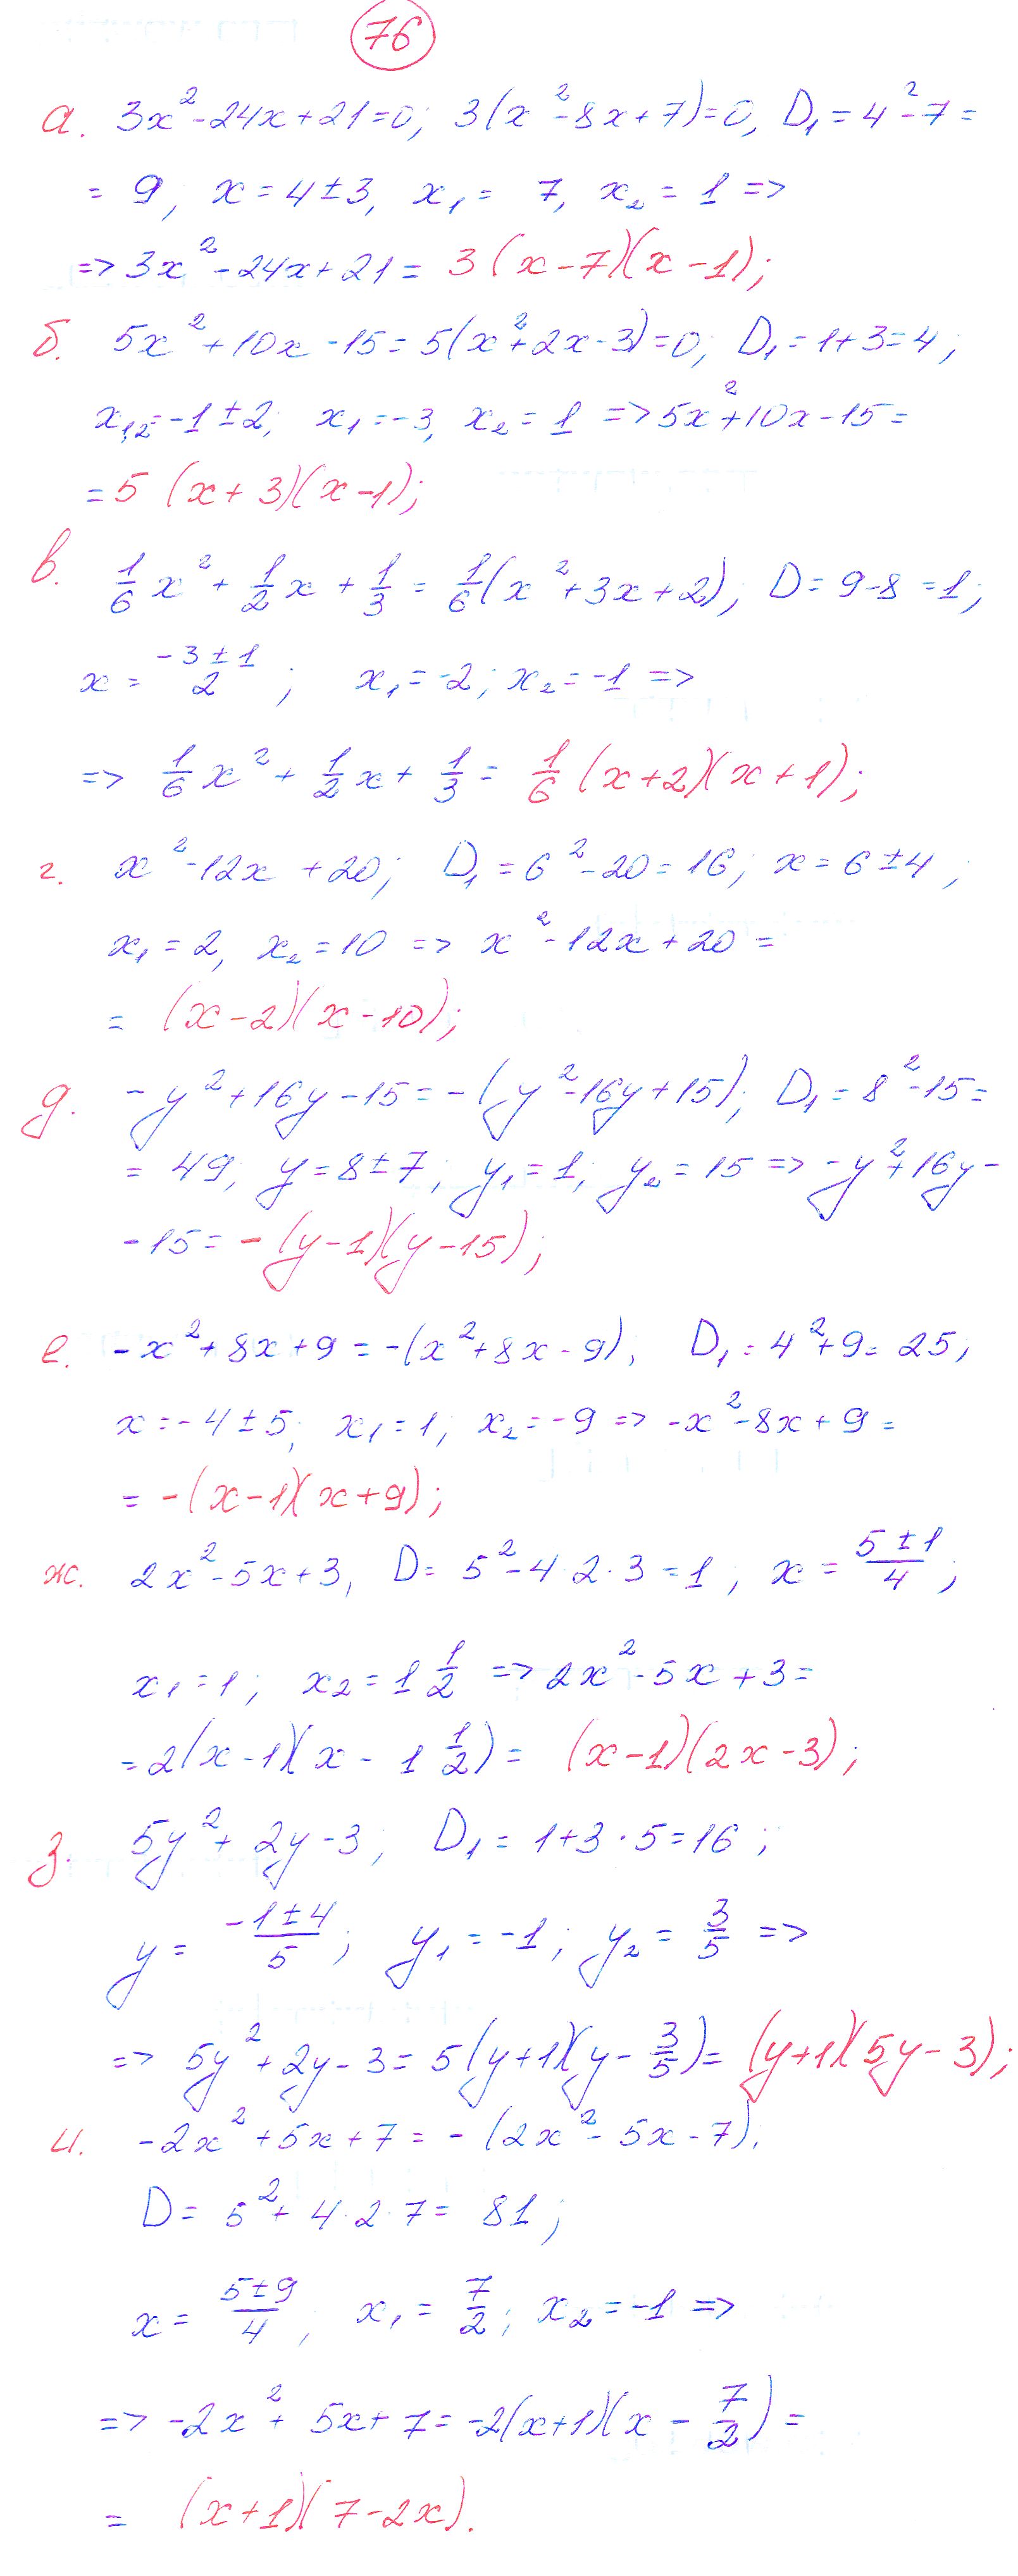 76
а. 3x²-24x+21=0; 3(x²-8x+7)=0, D₁=4²-7=
= 9, x=4±3, x₁= 7, x₂=1 =>
=> 3x²-24x+21= 3(x-7)(x-1);
б. 5x²+10x-15=5(x²+2x-3)=0; D₁=1+3=4;
x₁,₂=-1±2; x₁=-3, x₂=1 => 5x²+10x-15=
=5 (x+3)(x-1);
в. 1/6 x²+ 1/2 x + 1/3 = 1/6(x²+3x+2); D=9-8=1;
x = (-3±1)/2 ; x₁=-2; x₂=-1 =>
=> 1/6 x²+ 1/2 x+ 1/3 = 1/6 (x+2)(x+1);
г. x²-12x+20; D₁=6²-20=16; x=6±4;
x₁=2, x₂=10 => x²-12x+20=
= (x-2)(x-10);
д. -y²+16y-15=-(y²-16y+15); D₁=8²-15=
= 49, y=8±7; y₁=1; y₂=15 => -y²+16y-
-15=-(y-1)(y-15);
е. -x²+8x+9=-(x²+8x-9), D₁=4²+9=25,
x=-4±5; x₁=1; x₂=-9 => -x²-8x+9=
= -(x-1)(x+9);
ж. 2x²-5x+3, D=5²-4·2·3=1, x= (5±1)/4;
x₁=1; x₂=1 1/2 => 2x²-5x+3=
=2(x-1)(x- 1 1/2)= (x-1)(2x-3);
з. 5y²+2y-3; D₁=1+3·5=16;
y= (-1±4)/5; y₁=-1; y₂= 3/5 =>
=> 5y²+2y-3=5(y+1)(y- 3/5)= (y+1)(5y-3);
и. -2x²+5x+7=-(2x²-5x-7).
D=5²+4·2·7=81;
x= (5±9)/4, x₁= 7/2; x₂=-1 =>
=> -2x²+5x+7=-2(x+1)(x- 7/2)=
= (x+1)(7-2x).